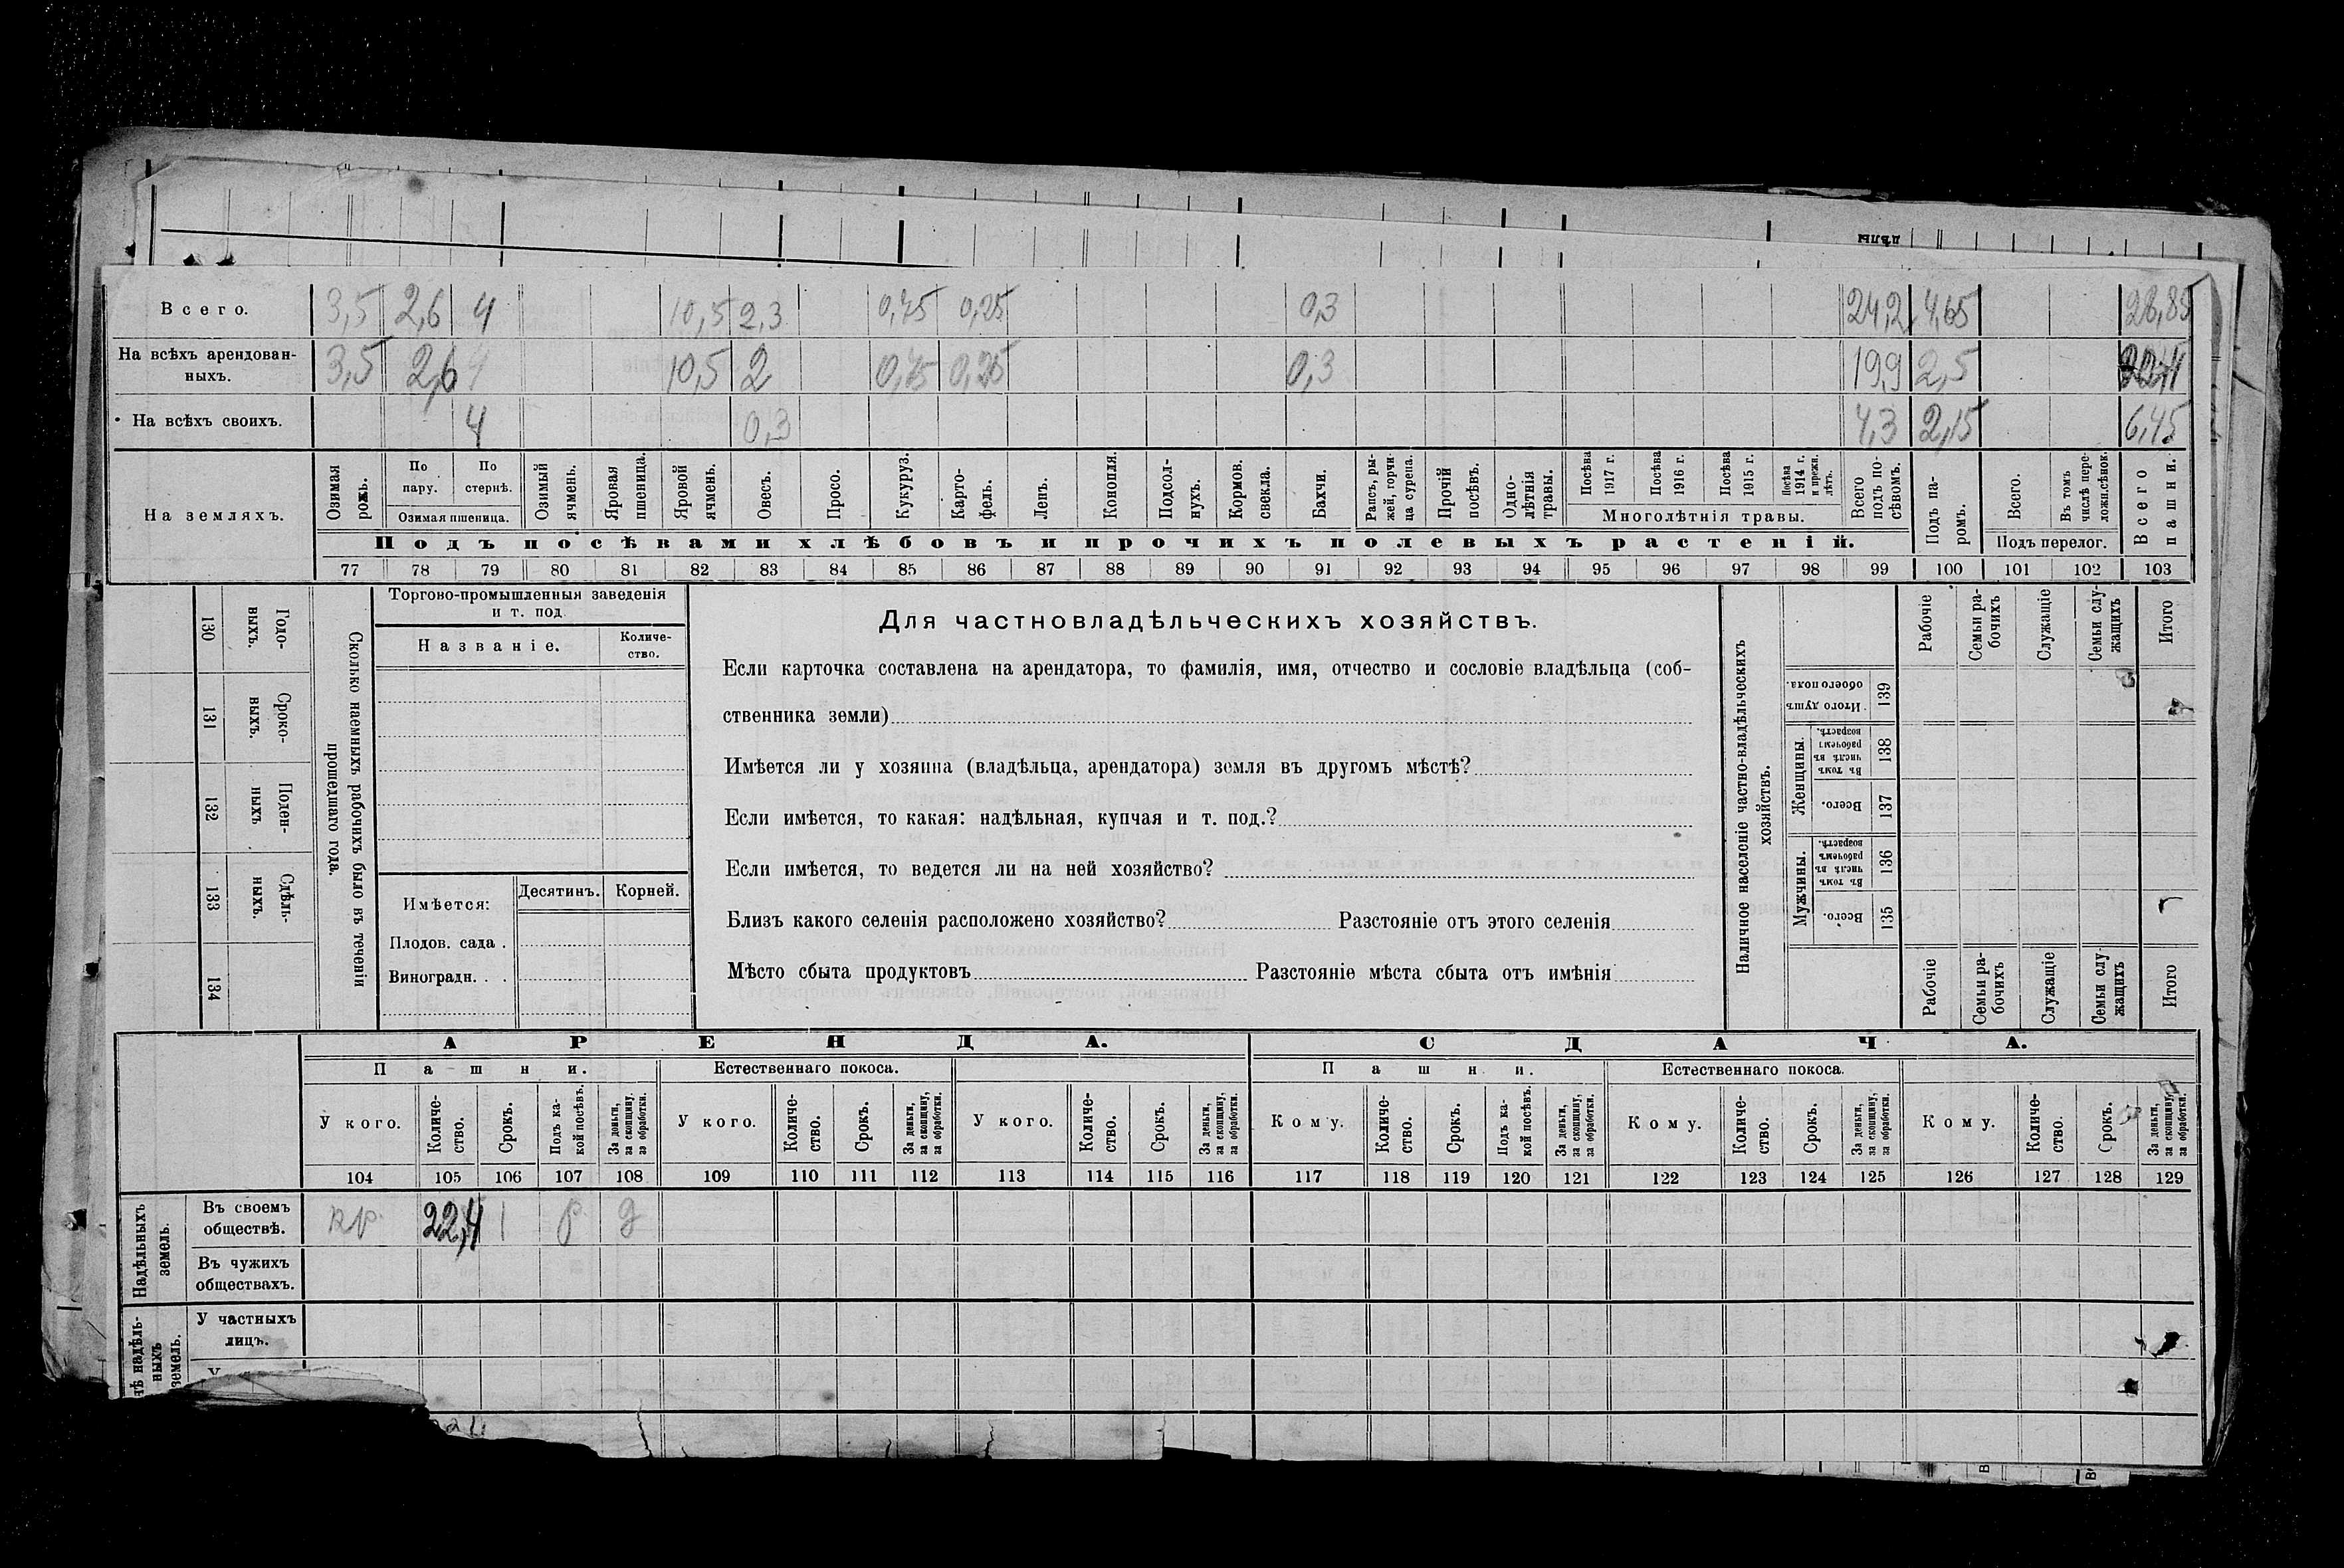 дѣлы
Всего. 3,5 2,6 4 10,5 2,3 0,75 0,25 0,3 24,2 4,65 28,85
На всѣхъ арендован-
ныхъ. 3,5 2,6 10,5 2 0,75 0,25 0,3 19,9 2,5 22,4
На всѣхъ своихъ. 4 0,3 4,3 2,15 6,45
На земляхъ.
Озимая рожь.
По пару.
По стернѣ.
Озимая пшеница.
Озимый ячмень.
Яровая пшеница.
Яровой ячмень.
Овесъ.
Просо.
Кукуруз.
Карто-
фель.
Ленъ.
Конопля.
Подсол-
нухъ.
Кормов. свекла.
Бахчи.
Рапсъ, ры-
жей, горчи-
ца сурепа.
Прочій посѣвъ.
Одно-
лѣтнія травы.
Посѣва 1917 г.
Посѣва 1916 г.
Посѣва 1915 г.
Посѣва 1914 г. и прежн. лѣтъ.
Многолѣтнія травы.
Всего подъ по-
сѣвомъ.
Подъ па-
ромъ.
Всего.
Въ томъ числѣ пере-
ложн.сѣнок.
Подъ перелог.
Всего пашни.
Подъ посѣвами хлѣбовъ и прочихъ полевыхъ растеній.
77 78 79 80 81 82 83 84 85 86 87 88 89 90 91 92 93 94 95 96 97 98 99 100 101 102 103
130 Годо-
выхъ.
131 Сроко-
ныхъ.
132 Поден-
ныхъ
133 Сдѣль-
ныхъ.
134
Сколько наемныхъ рабочихъ было въ теченіи
прошедшаго года.
Торгово-промышленныя заведенія
и т. под
Названіе.
Количе-
ство.
Имѣется:
Десятинъ.
Корней.
Плодов. сада .
Виноградн. . .
Для частновладѣльческихъ хозяйствъ.
Если карточка составлена на арендатора, то фамилія, имя, отчество и сословіе владѣльца (соб-
ственника земли)
Имѣется ли у хозяина (владѣльца, арендатора) земля въ другомъ мѣстѣ?
Если имѣется, то какая: надѣльная, купчая и т. под.?
Если имѣется, то ведется ли на ней хозяйство?
Близъ какого селенія расположено хозяйство? Разстояніе отъ этого селенія
Мѣсто сбыта продуктовъ Разстояніе мѣста сбыта отъ имѣнія
Наличное населеніе частно-владѣльческихъ
хозяйствъ.
Рабочіе
Семьи ра-
бочихъ
Служащіе
Семьи слу-
жащихъ
Итого
Итого душъ обоего пола. 139
Женщины.
Въ томъ числѣ въ рабочемъ возрастѣ. 138
Всего. 137
Мужчины.
Въ томъ числѣ въ рабочемъ возрастѣ. 136
Всего. 135
Рабочіе
Семьи ра-
бочихъ
Служащіе
Семьи слу-
жащихъ
Итого
АРЕНДА. СДАЧА.
Пашни. Естественнаго покоса. Пашни. Естественнаго покоса.
У кого.
Количе-
ство.
Срокъ.
Подъ ка-
кой посѣвъ.
За деньги, за скопщину, за обработки.
У кого.
Количе-
ство.
Срокъ.
За деньги, за скопщину, за обработки.
У кого.
Количе-
ство.
Срокъ.
За деньги, за скопщину, за обработки.
Кому.
Количе-
ство.
Срокъ.
Подъ ка-
кой посѣвъ.
За деньги, за скопщину, за обработки.
Кому.
Количе-
ство.
Срокъ.
За деньги, за скопщину, за обработки.
Кому.
Количе-
ство.
Срокъ.
За деньги, за скопщину, за обработки.
104 105 106 107 108 109 110 111 112 113 114 115 116 117 118 119 120 121 122 123 124 125 126 127 128 129
Надѣльныхъ
земель.
Въ своемъ
обществѣ. кр. 22,4 1 р д
Въ чужихъ
обществахъ.
надѣль-
ныхъ
земель.
У частныхъ
лицъ.